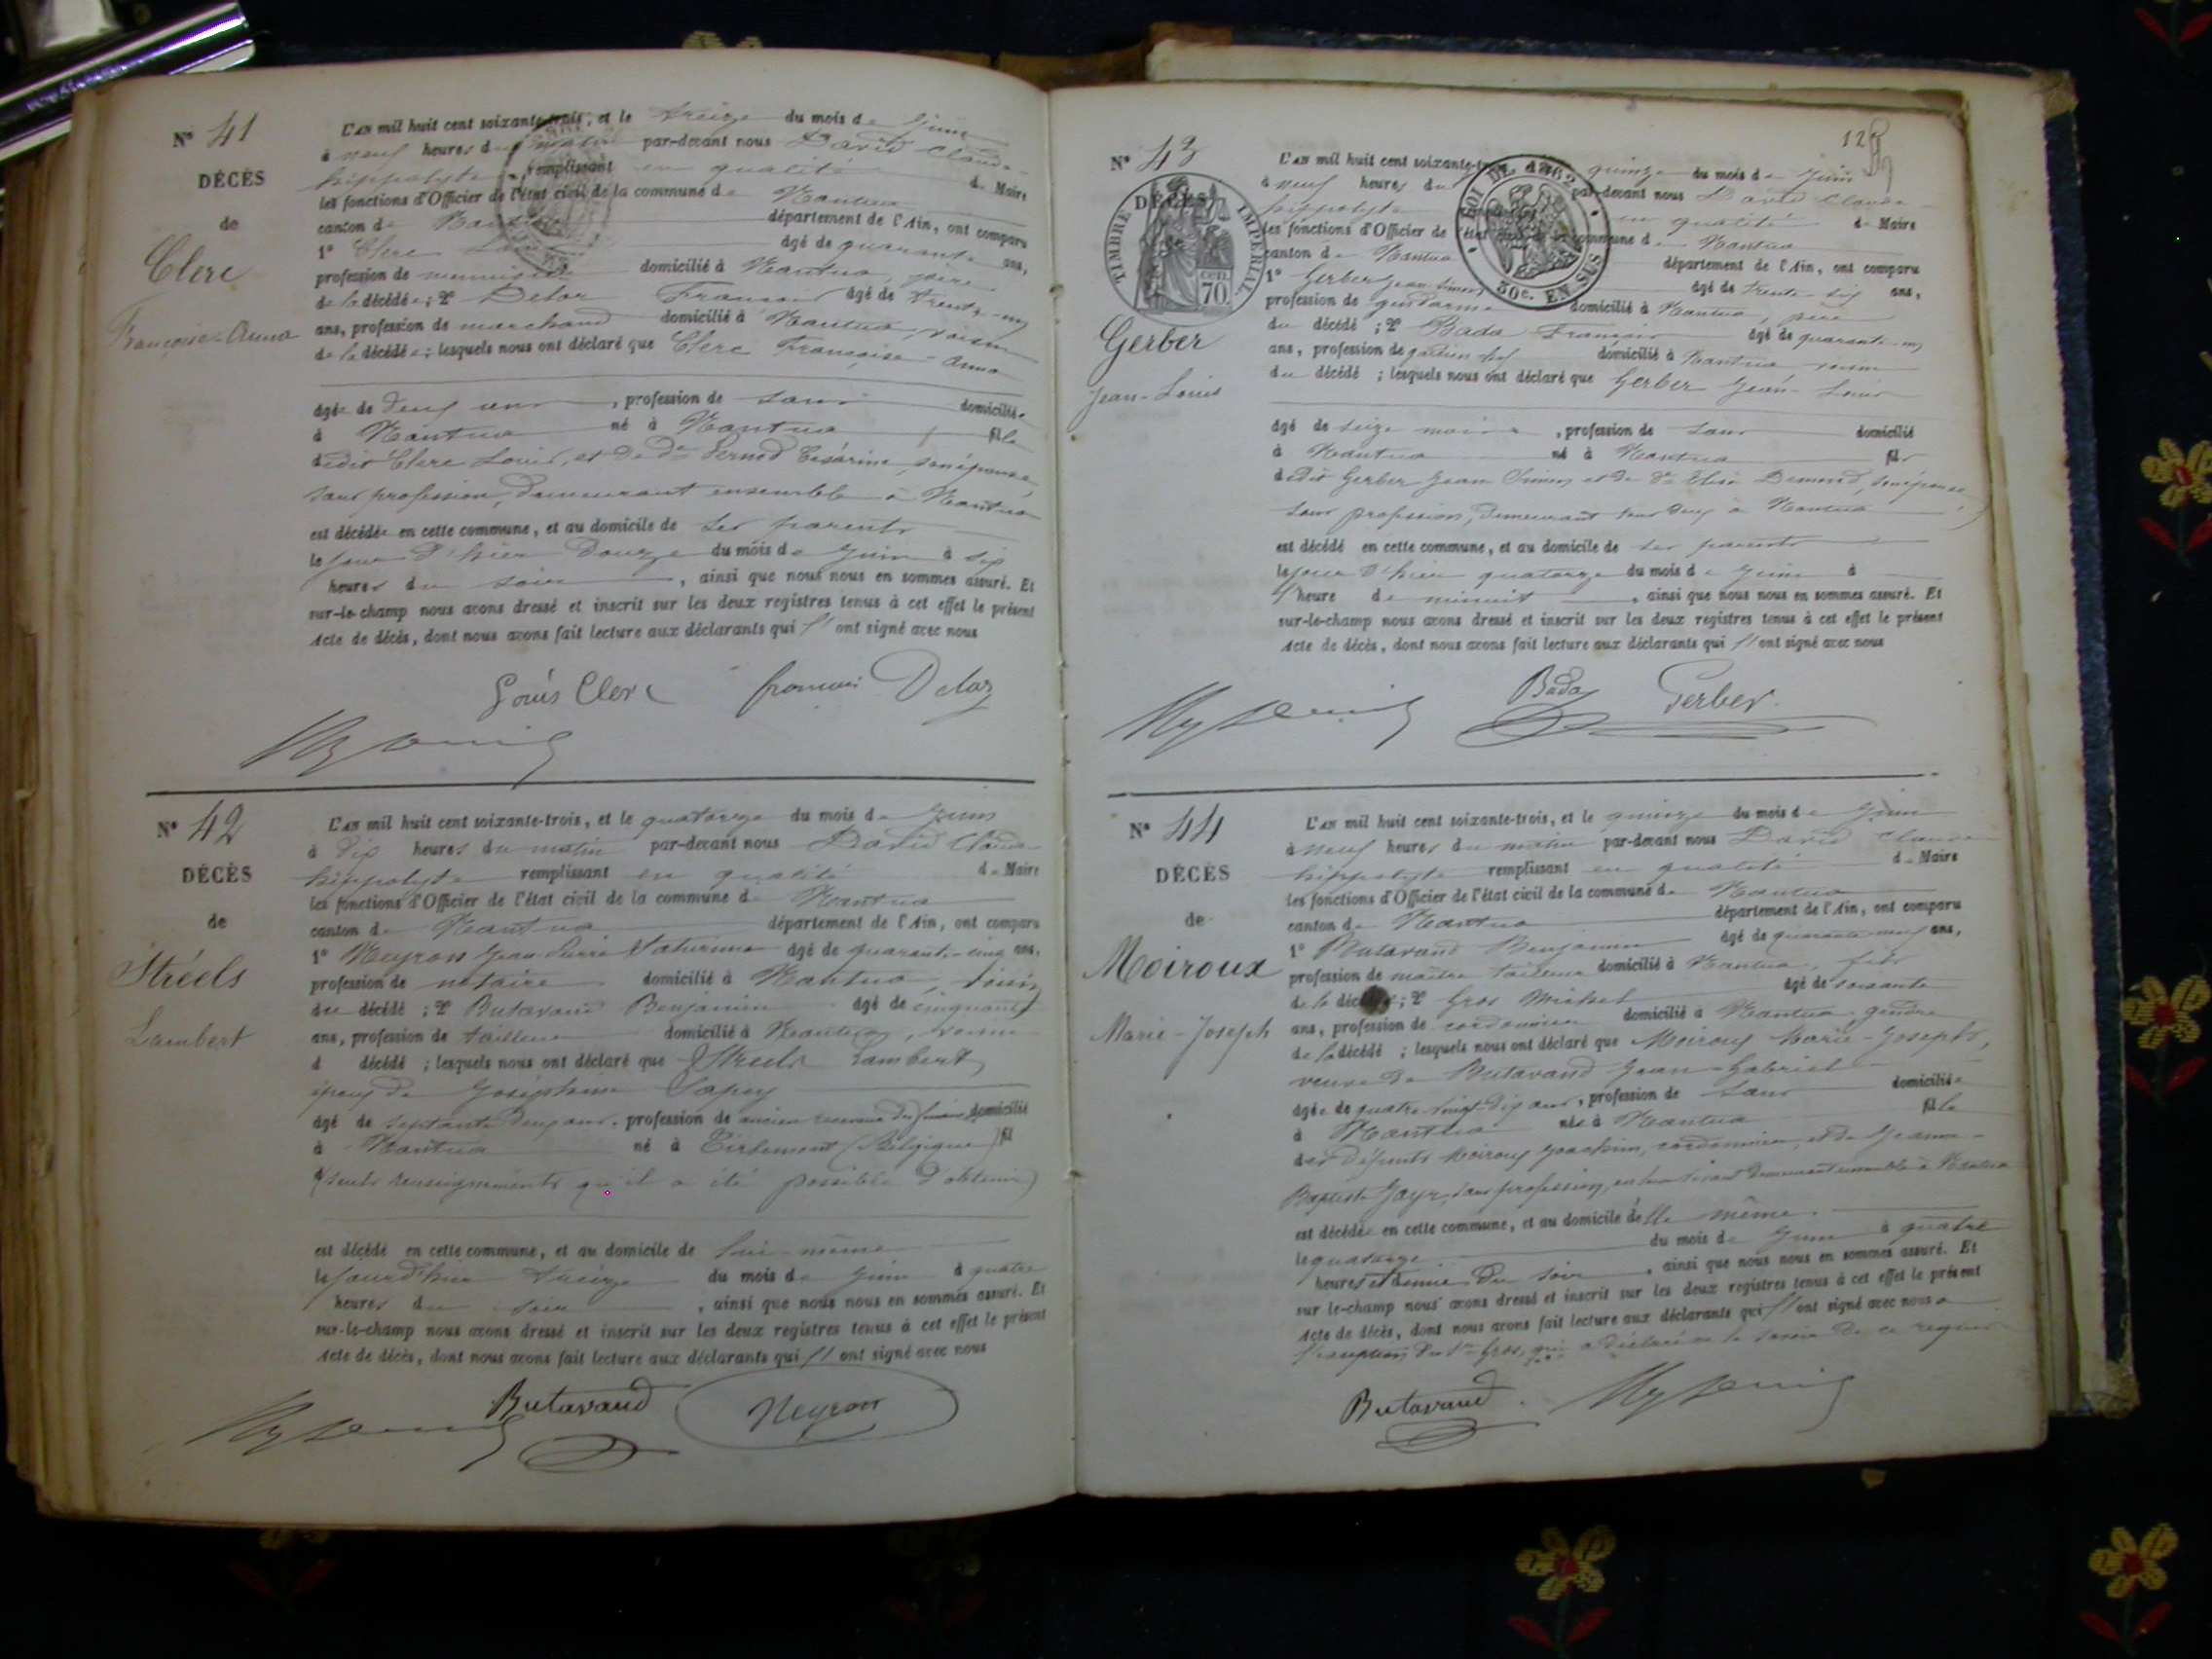 N° 41
DÉCÈS
de
Clerc
Françoise-Anna
L'AN mil huit cent soixante-trois, et le treize du mois de Juin
à neuf heures du matin par-devant nous David Claude
hippolyte remplissant en qualité de Maire
les fonctions d'Officier de l'état civil de la commune de Nantua
canton de Nantua département de l'Ain, ont comparu
1° Clerc Louis âgé de quarante ans,
profession de menuisier domicilié à Nantua, père
de la décédée; 2° Delor François âgé de trente-un
ans, profession de marchand domicilié à Nantua, voisin
de la décédée; lesquels nous ont déclaré que Clerc Françoise-Anna
âgée de deux ans, profession de sans domiciliée
à Nantua né à Nantua fille
dudit Clerc Louis, et de De Césarine, son épouse,
sans profession, demeurant ensemble à Nantua
est décédée en cette commune, et au domicile de ses parents
le jour d'hier douze du mois de Juin à six
heures du soir, ainsi que nous nous en sommes assuré. Et
sur-le-champ nous avons dressé et inscrit sur les deux registres tenus à cet effet le présent
Acte de décès, dont nous avons fait lecture aux déclarants qui l'ont signé avec nous
Louis Clerc françois Delor
N° 42
DÉCÈS
de
Stréels
Lambert
L'AN mil huit cent soixante-trois, et le quatorze du mois de Juin
à dix heures du matin par-devant nous David Claude
hippolyte remplissant en qualité de Maire
les fonctions d'Officier de l'état civil de la commune de Nantua
canton de Nantua département de l'Ain, ont comparu
1° Neyron Jean-Pierre Saturnin âgé de quarante-cinq ans,
profession de notaire domicilié à Nantua, voisin
du décédé; 2° Butavand Benjamin âgé de cinquante
ans, profession de tailleur domicilié à Nantua, voisin
d décédé; lesquels nous ont déclaré que Stréels Lambert
époux de Joséphine
âgé de septante deux ans, profession de ancien domicilié
à Nantua né à Tirlemont (Belgique) fil
(seuls renseignements qu'il a été possible d'obtenir)
est décédé en cette commune, et au domicile de lui-même
le jour d'hier treize du mois de Juin à quatre
heures du soir, ainsi que nous nous en sommes assuré. Et
sur-le-champ nous avons dressé et inscrit sur les deux registres tenus à cet effet le présent
Acte de décès, dont nous avons fait lecture aux déclarants qui l'ont signé avec nous
Butavand Neyron
N° 43
DÉCÈS
TIMBRE IMPÉRIAL
70 cen.
LOI DE 1862
50c. EN SUS
Gerber
Jean-Louis
L'AN mil huit cent soixante-t quinze du mois de Juin
à neuf heures du par-devant nous David Claude
hippolyte en qualité de Maire
les fonctions d'Officier de l'état commune de Nantua
canton de Nantua département de l'Ain, ont comparu
1° Gerber Jean Simon âgé de trente six ans,
profession de gendarme domicilié à Nantua, père
du décédé; 2° Bada François âgé de quarante-un
ans, profession de gardien chef domicilié à Nantua voisin
du décédé; lesquels nous ont déclaré que Gerber Jean-Louis
âgé de seize mois, profession de sans domicilié
à Nantua né à Nantua fils
dudit Gerber Jean Simon et de De Elisa, son épouse,
sans profession, demeurant tous deux à Nantua
est décédé en cette commune, et au domicile de ses parents
le jour d'hier quatorze du mois de Juin à
l'heure de minuit, ainsi que nous nous en sommes assuré. Et
sur-le-champ nous avons dressé et inscrit sur les deux registres tenus à cet effet le présent
Acte de décès, dont nous avons fait lecture aux déclarants qui l'ont signé avec nous
Bada Gerber
N° 44
DÉCÈS
de
Moiroux
Marie-Joseph
L'AN mil huit cent soixante-trois, et le quinze du mois de Juin
à neuf heures du matin par-devant nous David Claude
hippolyte remplissant en qualité de Maire
les fonctions d'Officier de l'état civil de la commune de Nantua
canton de Nantua département de l'Ain, ont comparu
1° Butavand Benjamin âgé de quarante-neuf ans,
profession de maître tailleur domicilié à Nantua, fils
de la décédée; 2° Gros Michel âgé de soixante
ans, profession de cordonnier domicilié à Nantua gendre
de la décédée; lesquels nous ont déclaré que Moiroux Marie-Joseph,
veuve de Butavand Jean-Gabriel
âgée de quatre-vingt-dix ans, profession de sans domiciliée
à Nantua née à Nantua fille
des défunts Moiroux Joachim, cordonnier, et de Jeanne-
Baptiste Jayr, sans profession, en leur vivant demeurant ensemble à Nantua
est décédée en cette commune, et au domicile d'elle même
le quatorze du mois de Juin à quatre
heures et demie du soir, ainsi que nous nous en sommes assuré. Et
sur-le-champ nous avons dressé et inscrit sur les deux registres tenus à cet effet le présent
Acte de décès, dont nous avons fait lecture aux déclarants qui l'ont signé avec nous à
l'exception du Sr Gros, qui a déclaré ne le savoir de ce requis
Butavand